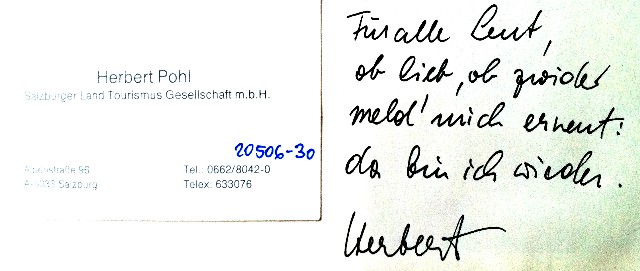 Herbert Pohl
Salzburger Land Tourismus Gesellschaft m.b.H.
20506-30
Alpenstraße 96
Tel.: 0662/8042-0
A-5033 Salzburg
Telex: 633076
Für alle Leut',
ob lieb, ob zwider
meld' mich erneut:
da bin ich wieder.
Herbert